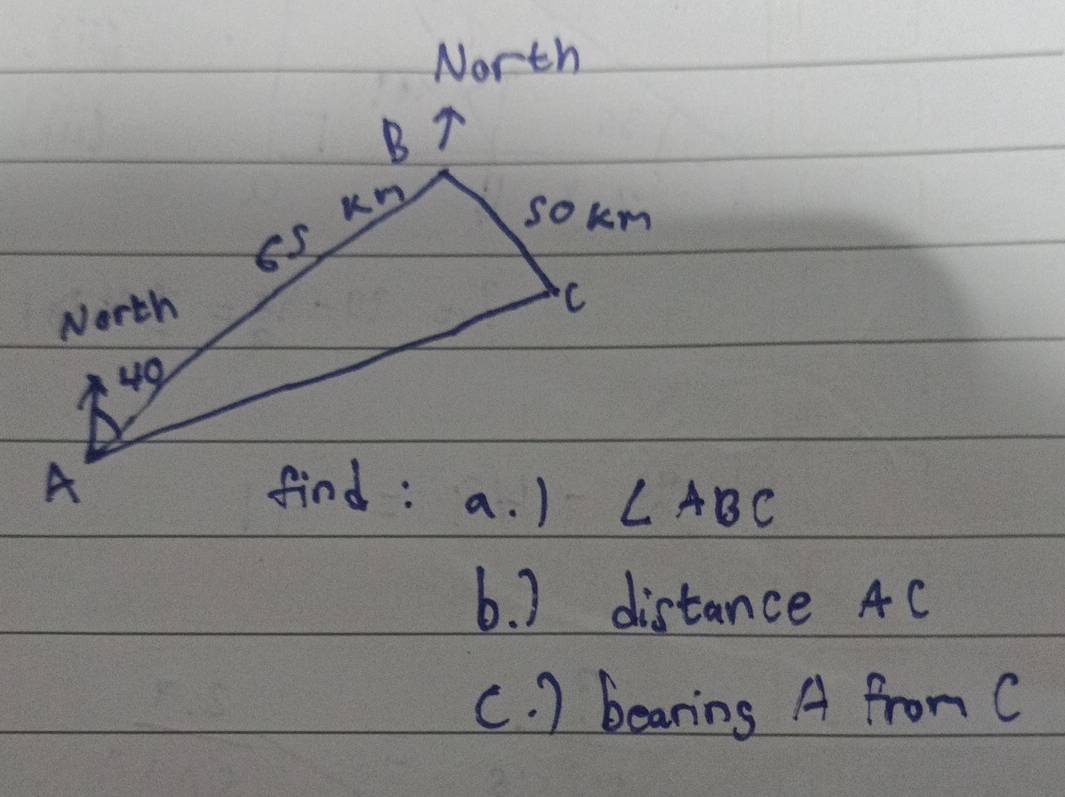 North
B ↑
65 km
50 km
North
40
C
A
find : a.) ∠ ABC
b.) distance AC
c.) bearing A from C